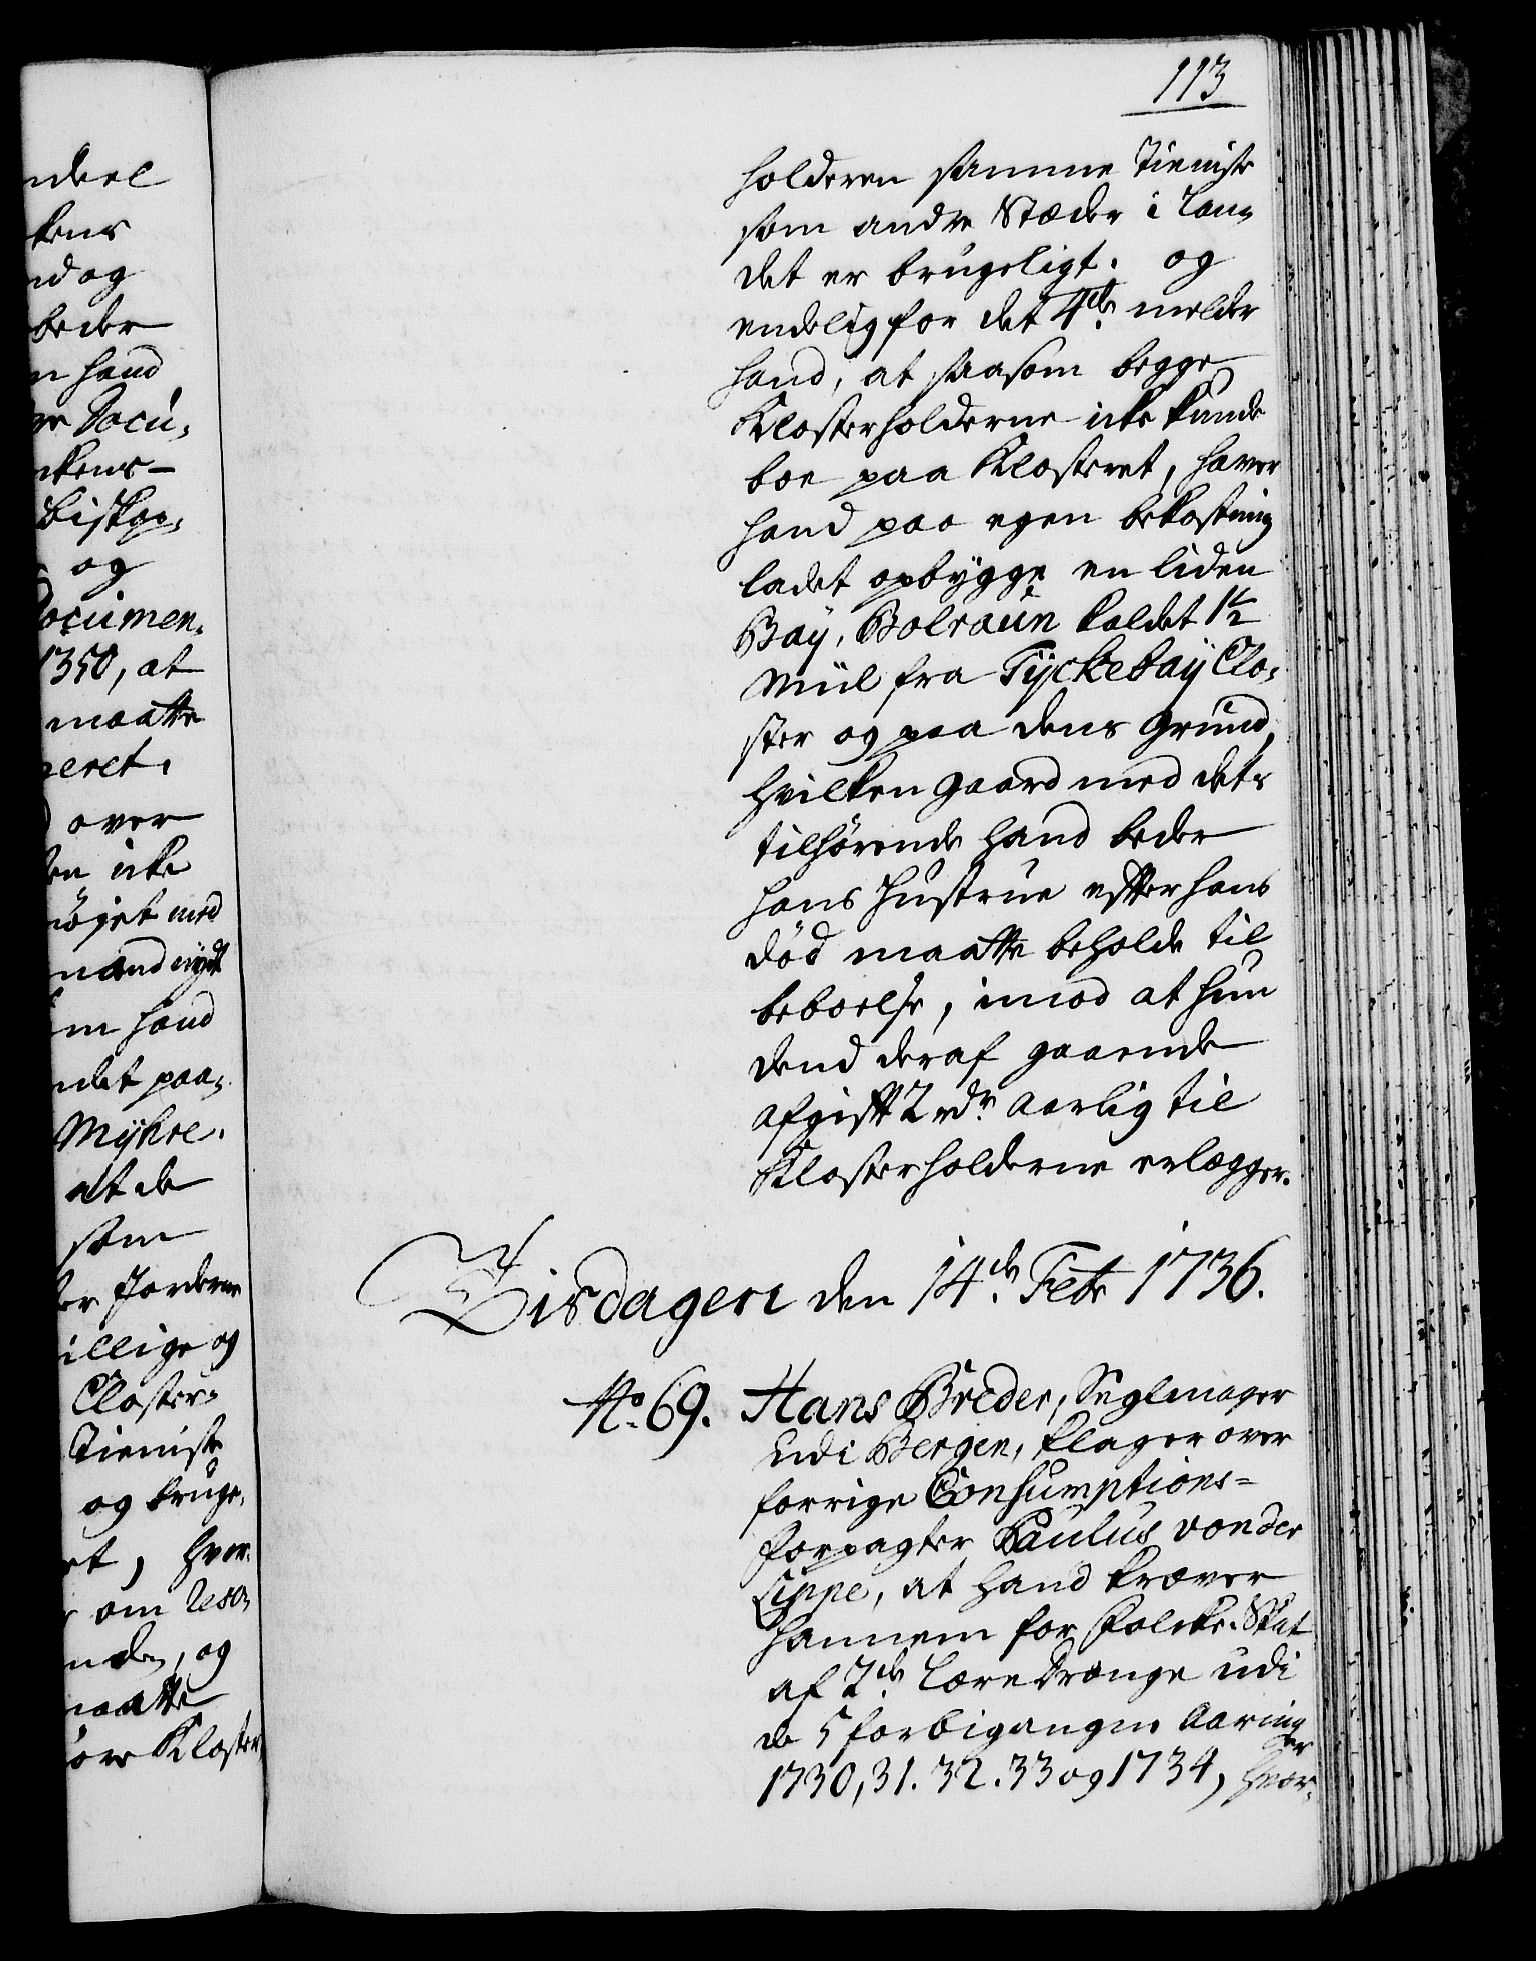 113
holderen samme Tieniste
som andre Stæder i Lan,
det er brugeligt. og
endelig for det 4de melder
hand, at saasom begge
Klosterholderne icke kunde
boe paa Klosteret, haver
hand paa egen bekostning
ladet opbygge en liden
Bay, Bolraun kaldet 1½
Miil fra Tyckebaÿ Clo,
ster og paa dens Grund,
hvilken Gaard med dets
tilhørende hand beder
hans Hustrue efter hans
død maatte beholde til
beboelse, imod at hun
dend deraf gaaende
afgift 2 rdr aarlig til
Klosterholderne erlægger.
Tisdagen den 14de Febr 1736.
No 69. Hans Breder, Seglmager
udi Bergen, klager over
forrige Consumptions=
forpagter Paulus von der
Lippe, at hand kræver
hannem for Folcke-Skat
af 2de Læredrænge udi
de 5 forbigangne Aaringer
1730, 31. 32. 33 og 1734, hvor-
ndeel
kens
nd og
beder
n hand
re Docu,
ckens
Biskop,
og
Documen,
1350, at
maatte
neret.
over
den icke
nøjet med
mand nydt
m hand
ndet paa,
Myhre.
at de
som
er Jorderne
illige og
Closter=
Tieniste
og bruge,
et, hvor,
om Reso,
nde, og
maatte
øre Kloster